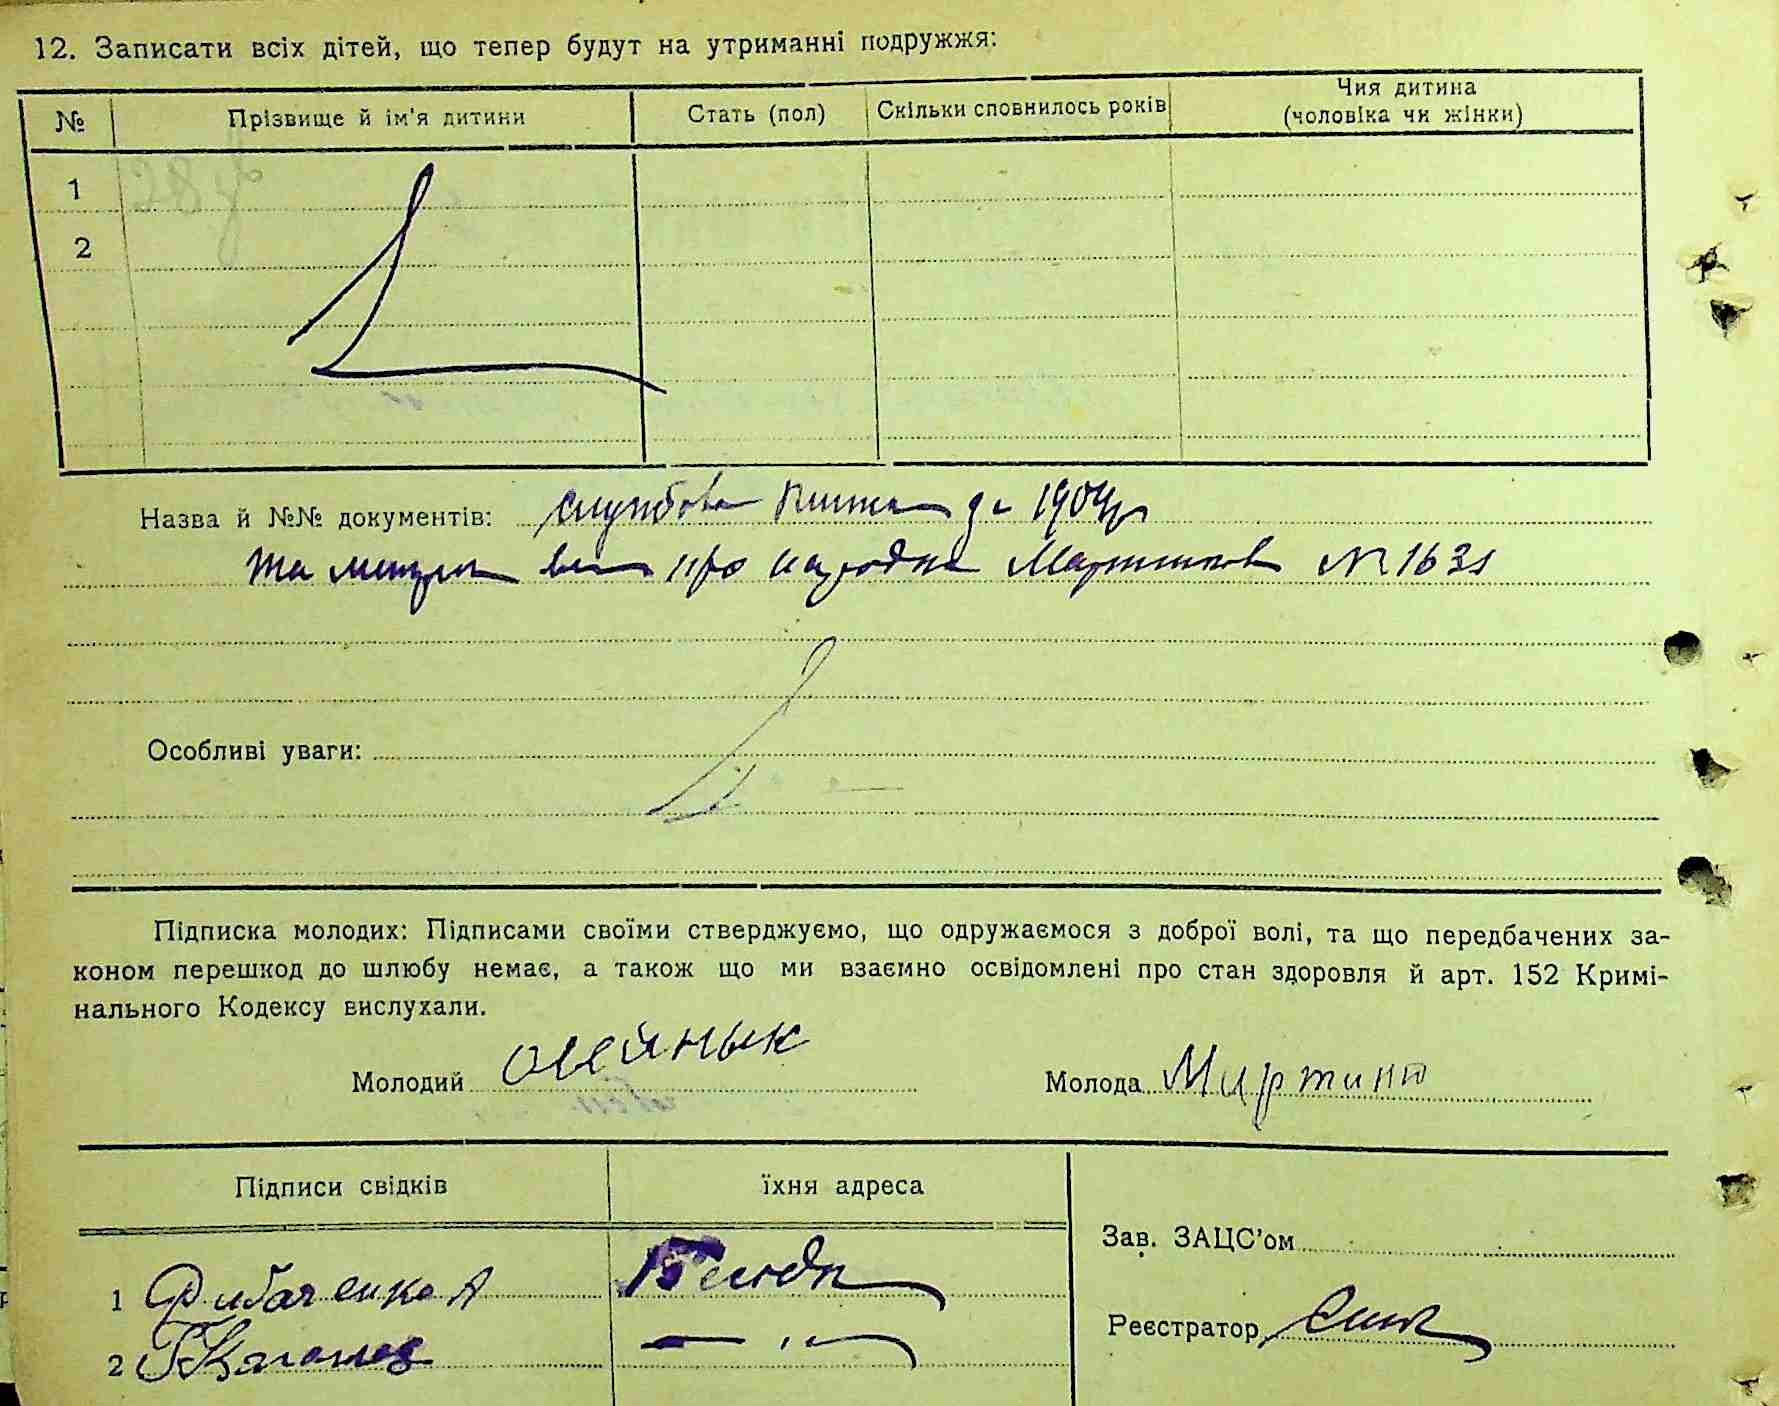 12. Записати всіх дітей, що тепер будут на утриманні подружжя:
№ Прізвище й ім'я дитини Стать (пол) Скільки сповнилось років Чия дитина (чоловіка чи жінки)
1
2
Назва й №№ документів: службова книжка за 1904 р
та про народж № 1631
Особливі уваги:
Підписка молодих: Підписами своїми стверджуємо, що одружаємося з доброї волі, та що передбачених за-
коном перешкод до шлюбу немає, а також що ми взаємно освідомлені про стан здоровля й арт. 152 Кримі-
нального Кодексу вислухали.
Молодий Олейнык Молода Мартиню
Підписи свідків їхня адреса
Зав. ЗАЦС'ом
1 Рибаченко А
Реєстратор
2